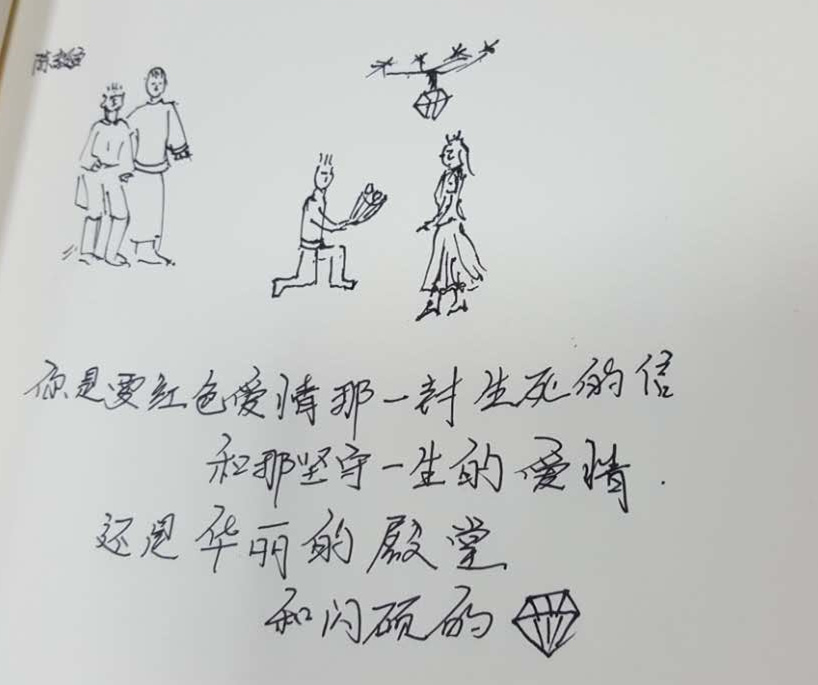 你是要红色爱情那一封生死的信
和那坚守一生的爱情.
还是华丽的殿堂
和闪硕的